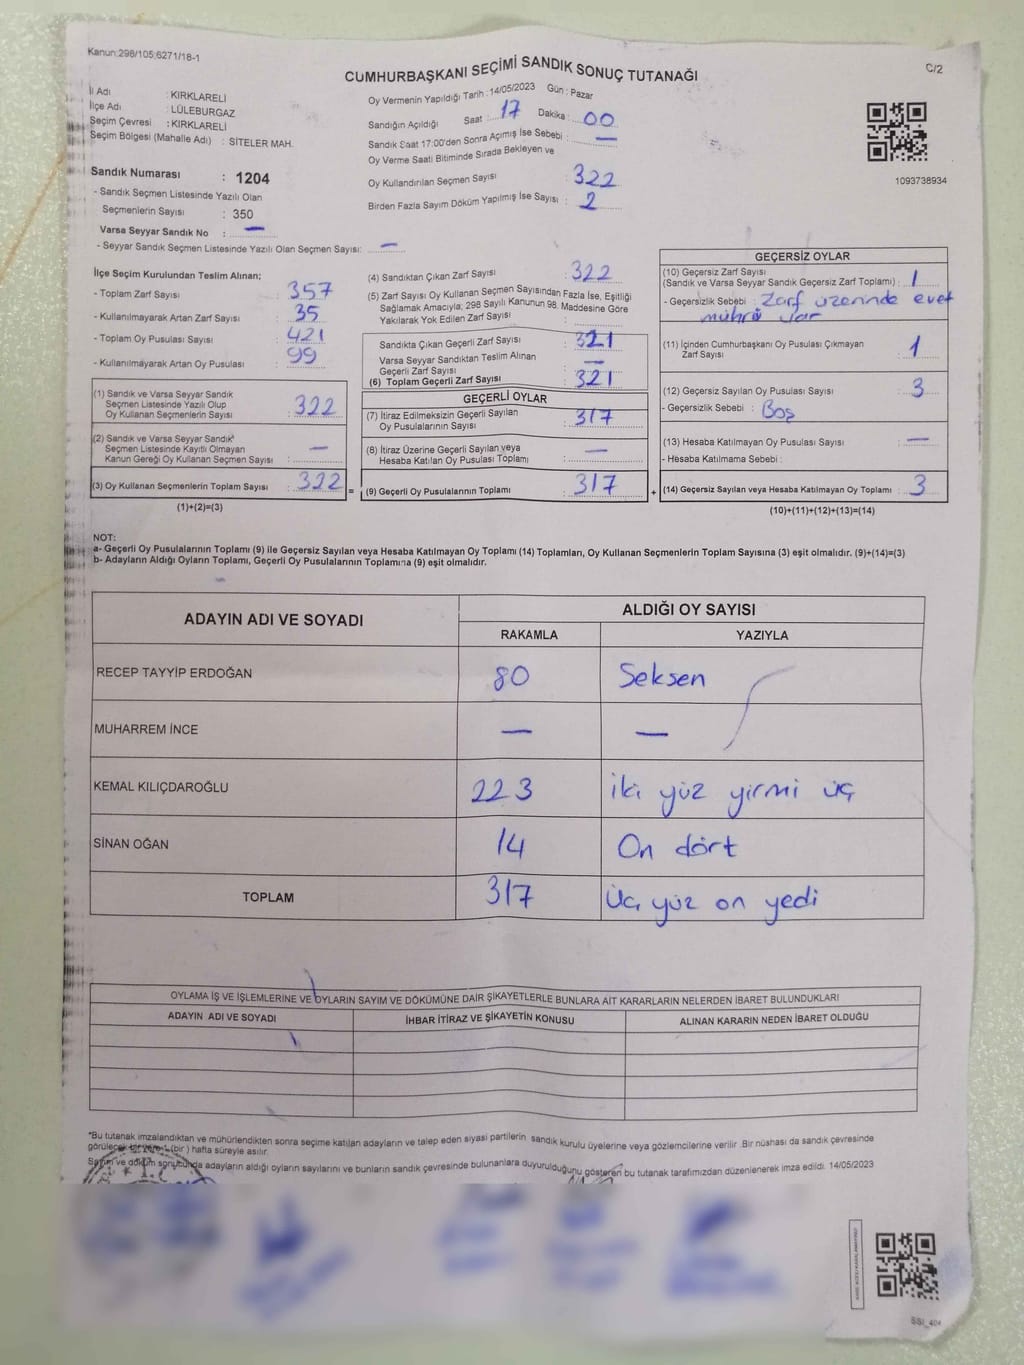 Kanun:298/105;6271/18-1
C/2
CUMHURBAŞKANI SEÇİMİ SANDIK SONUÇ TUTANAĞI
İl Adı : KIRKLARELİ
İlçe Adı : LÜLEBURGAZ
Seçim Çevresi : KIRKLARELİ
Seçim Bölgesi (Mahalle Adı) : SİTELER MAH.
Oy Vermenin Yapıldığı Tarih : 14/05/2023 Gün : Pazar
Sandığın Açıldığı Saat : 17 Dakika : 00
Sandık Saat 17:00'den Sonra Açımış İse Sebebi : —
Oy Verme Saati Bitiminde Sırada Bekleyen ve
Oy Kullandırılan Seçmen Sayısı : 322
Birden Fazla Sayım Döküm Yapılmış İse Sayısı : 2
1093738934
Sandık Numarası : 1204
- Sandık Seçmen Listesinde Yazılı Olan
Seçmenlerin Sayısı : 350
Varsa Seyyar Sandık No : —
- Seyyar Sandık Seçmen Listesinde Yazılı Olan Seçmen Sayısı: —
İlçe Seçim Kurulundan Teslim Alınan;
- Toplam Zarf Sayısı : 357
- Kullanılmayarak Artan Zarf Sayısı : 35
- Toplam Oy Pusulası Sayısı : 421
- Kullanılmayarak Artan Oy Pusulası : 99
(1) Sandık ve Varsa Seyyar Sandık
Seçmen Listesinde Yazılı Olup
Oy Kullanan Seçmenlerin Sayısı : 322
(2) Sandık ve Varsa Seyyar Sandık
Seçmen Listesinde Kayıtlı Olmayan
Kanun Gereği Oy Kullanan Seçmen Sayısı : —
(3) Oy Kullanan Seçmenlerin Toplam Sayısı : 322
(1)+(2)=(3)
(4) Sandıktan Çıkan Zarf Sayısı : 322
(5) Zarf Sayısı Oy Kullanan Seçmen Sayısından Fazla İse, Eşitliği
Sağlamak Amacıyla; 298 Sayılı Kanunun 98. Maddesine Göre
Yakılarak Yok Edilen Zarf Sayısı :
Sandıkta Çıkan Geçerli Zarf Sayısı : 321
Varsa Seyyar Sandıktan Teslim Alınan
Geçerli Zarf Sayısı : —
(6) Toplam Geçerli Zarf Sayısı : 321
GEÇERLİ OYLAR
(7) İtiraz Edilmeksizin Geçerli Sayılan
Oy Pusulalarının Sayısı : 317
(8) İtiraz Üzerine Geçerli Sayılan veya
Hesaba Katılan Oy Pusulası Toplamı : —
= (9) Geçerli Oy Pusulalarının Toplamı : 317 +
GEÇERSİZ OYLAR
(10) Geçersiz Zarf Sayısı
(Sandık ve Varsa Seyyar Sandık Geçersiz Zarf Toplamı) : 1
- Geçersizlik Sebebi : Zarf üzerinde evet
mührü var
(11) İçinden Cumhurbaşkanı Oy Pusulası Çıkmayan
Zarf Sayısı : 1
(12) Geçersiz Sayılan Oy Pusulası Sayısı : 3
- Geçersizlik Sebebi : Boş
(13) Hesaba Katılmayan Oy Pusulası Sayısı : —
- Hesaba Katılmama Sebebi :
(14) Geçersiz Sayılan veya Hesaba Katılmayan Oy Toplamı : 3
(10)+(11)+(12)+(13)=(14)
NOT:
a- Geçerli Oy Pusulalarının Toplamı (9) ile Geçersiz Sayılan veya Hesaba Katılmayan Oy Toplamı (14) Toplamları, Oy Kullanan Seçmenlerin Toplam Sayısına (3) eşit olmalıdır. (9)+(14)=(3)
b- Adayların Aldığı Oyların Toplamı, Geçerli Oy Pusulalarının Toplamına (9) eşit olmalıdır.
ADAYIN ADI VE SOYADI
ALDIĞI OY SAYISI
RAKAMLA YAZIYLA
RECEP TAYYİP ERDOĞAN 80 Seksen
MUHARREM İNCE — —
KEMAL KILIÇDAROĞLU 223 iki yüz yirmi üç
SİNAN OĞAN 14 On dört
TOPLAM 317 Üç yüz on yedi
OYLAMA İŞ VE İŞLEMLERİNE VE OYLARIN SAYIM VE DÖKÜMÜNE DAİR ŞİKAYETLERLE BUNLARA AİT KARARLARIN NELERDEN İBARET BULUNDUKLARI
ADAYIN ADI VE SOYADI İHBAR İTİRAZ VE ŞİKAYETİN KONUSU ALINAN KARARIN NEDEN İBARET OLDUĞU
*Bu tutanak imzalandıktan ve mühürlendikten sonra seçime katılan adayların ve talep eden siyasi partilerin sandık kurulu üyelerine veya gözlemcilerine verilir .Bir nüshası da sandık çevresinde
görülecek bir yere 1 (bir ) hafta süreyle asılır.
Sayım ve döküm sonucunda adayların aldığı oyların sayılarını ve bunların sandık çevresinde bulunanlara duyurulduğunu gösteren bu tutanak tarafımızdan düzenlenerek imza edildi. 14/05/2023
T.C